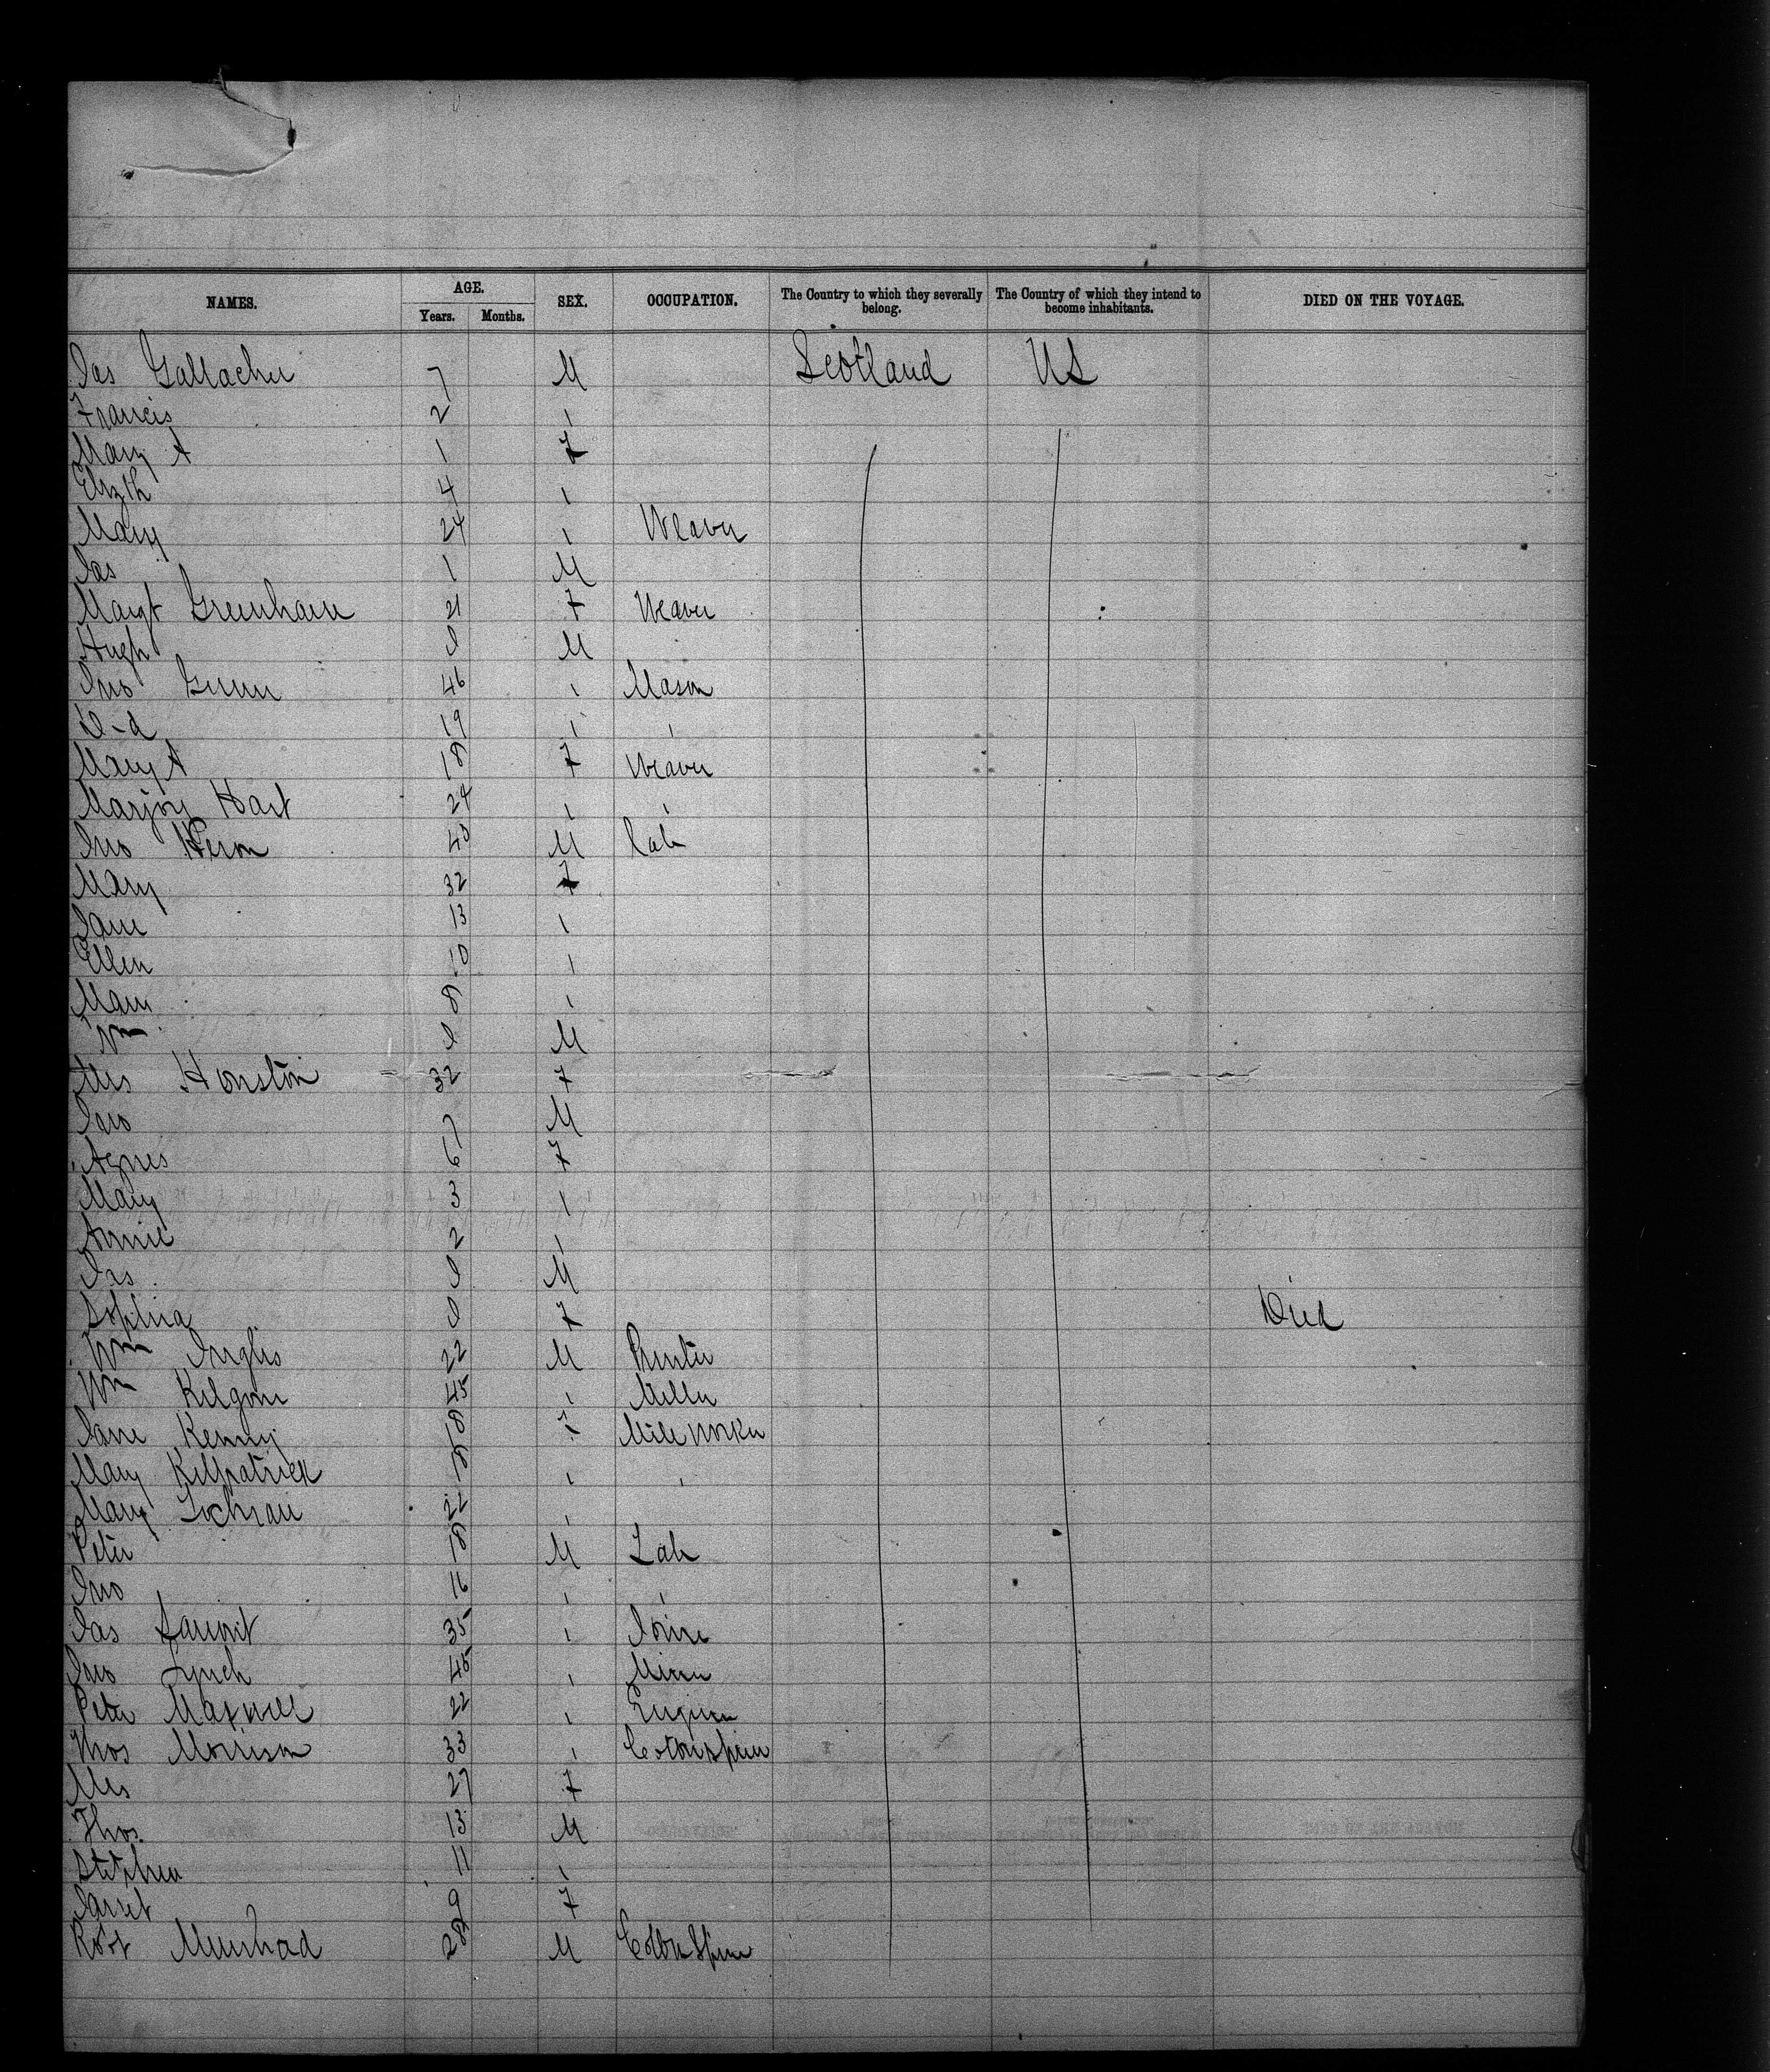 NAMES. AGE. SEX. OCCUPATION. The Country to which they severally belong. The Country of which they intend to become inhabitants. DIED ON THE VOYAGE.
Years. Months.
Jas Gallacher 7 M Scotland US
Francis 2 ı
Mary A 1 F
Elizth 4 ı
Mary 24 ı Weaver
Jas 1 M
Margt Greenham 21 F Weaver
Hugh 0 M
Jno 46 ı Mason
D-d 19 ı ı
Mary A 18 F Weaver
Marjory Hart 24 ı ı
Jno Heron 43 M Lab
Mary 32 F
Jane 13 ı
Ellen 10 ı
Mary 8 ı
Wm 0 M
Mrs Houston 32 F
Jno 7 M
Agnes 6 F
Mary 3 ı
Annie 2 ı
Jas 0 M
Sophia 0 F Died
Wm Inglis 22 M Printer
Wm Kilgour 45 ı Miller
Jane Kenny 18 F Mill Worker
Mary Kilpatrick 18 ı ı
Mary Lochran 22 ı
Peter 18 M Lab
Jno 16 ı ı
Jas Lamont 35 ı Joiner
Jno Lynch 45 ı Miner
Peter Maxwell 22 ı Engineer
Thos Morrison 33 ı Cotton Spinner
Mrs 27 F
Thos 13 M
Stephen 11 ı
Janet 9 F
Robt Muirhead 28 M Cotton Spinner